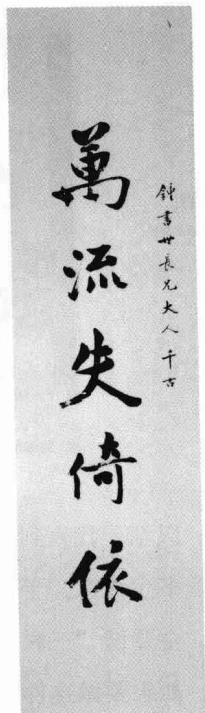 鍾書世長兄大人 千古
萬流失倚依